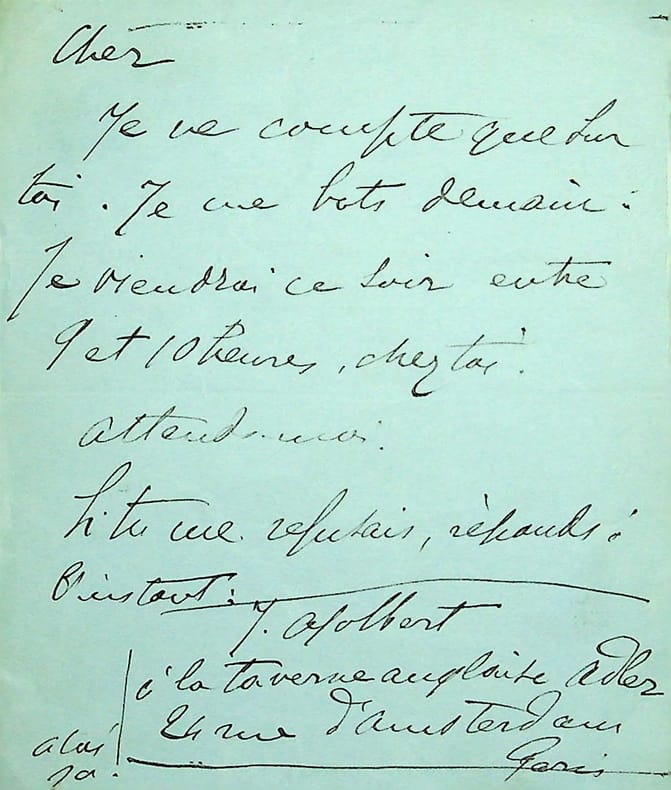 Cher
Je ne compte que sur
toi. Je me bats demain.
Je viendrai ce soir entre
9 et 10 heures, chez toi.
attends-moi.
Si tu me refusais, réponds à
l'instant:
J. Ajalbert
à la taverne anglaise Adler
24 rue d'amsterdam
Paris